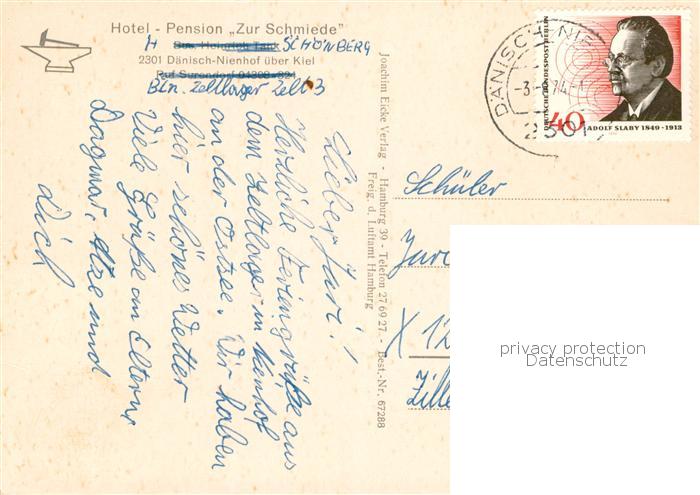 Hotel - Pension „Zur Schmiede”
H SCHÖNBERG
2301 Dänisch-Nienhof über Kiel
Bln. Zeltlager Zelt 3
Lieber Jari!
Herzliche Feriengrüße aus
dem Zeltlager in Nienhof
an der Ostsee. Wir haben
hier schönes Wetter
Viele Grüße an Eltern,
Dagmar, Atze und
Dich
Joachim Eicke Verlag - Hamburg 39 - Telefon 27 69 27. - Best.-Nr. 67288
Freig. d. Luftamt Hamburg
DÄNISCH-NI
2301
DEUTSCHE BUNDESPOST BERLIN
40
ADOLF SLABY 1849-1913
Schüler
X 12
Zille
privacy protection
Datenschutz